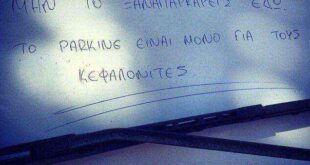 ΜΗΝ ΤΟ ΞΑΝΑΠΑΡΚΑΡΕΙΣ ΕΔΩ
ΤΟ PARKING ΕΙΝΑΙ ΜΟΝΟ ΓΙΑ ΤΟΥΣ
ΚΕΦΑΛΟΝΙΤΕΣ